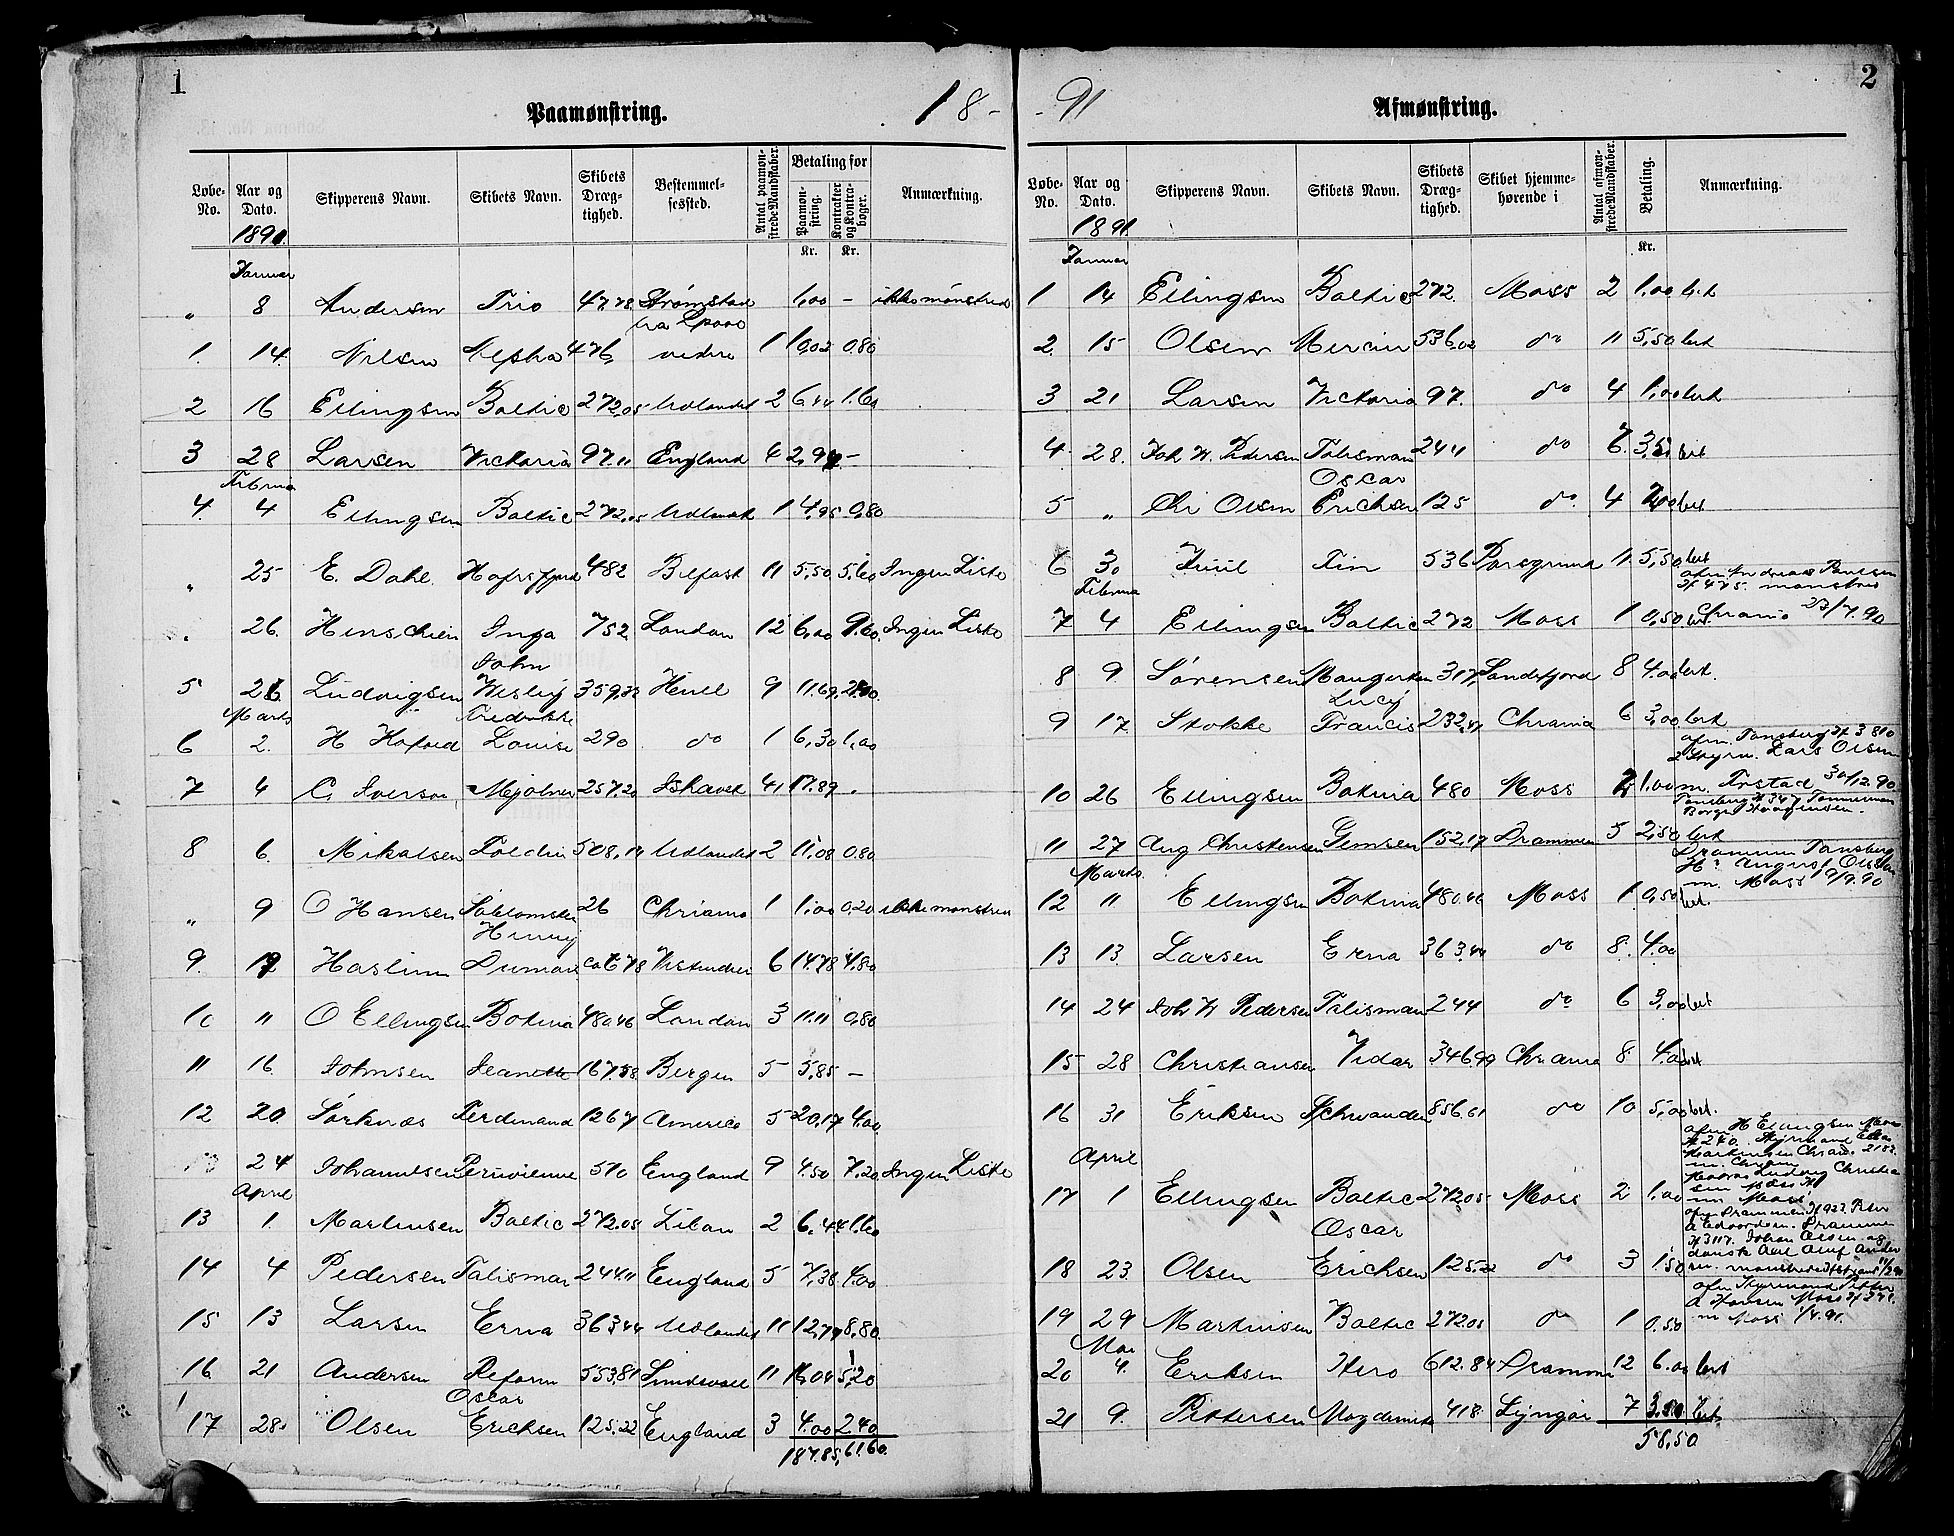 1
Paamønstring.
18-
Løbe-No.	Aar og Dato.	Skipperens Navn.	Skibets Navn.	Skibets Dræg-tighed.	Bestemmel-sessted.	Antal paamøn-strede Mandskaber.	Betaling for	Anmærkning.
Paamøn-string.	Kontrakter og Kontra-bøger.
1891.	Kr.	Kr.
Januar
„	8	Andersen	Trio	47,78	Strømstad	1,00	–	ikke mønstred
1	14	Nilsen	Alpha	476	videre	1	10,03	0.80
2	16	Ellingsen	Baltic	272,05	Udlandet	2	6.44	1.60
3	28	Larsen	Victoria	97.11	England	4	2,94	–
Februar
4	4	Ellingsen	Baltic	272,05	Udlandet	1	4,95	0,80
„	25	E. Dahl	Hafrsfjord	482	Belfast	11	5,50	5,60	Ingen Liste
„	26	Hinschien	Inga	752	London	12	6,00	9.60	Ingen Liste
John
5	26	Ludvigsen	Wesley	359,32	Hull	9	11.69
Marts	Fredrikke
6	2	H	Louise	290	do	1	6,30	1,00
7	4	C. Iverson	Mjølner	257.20	Ishavet	41	17.89
8	6	Mikalsen	508,14	Udlandet	2	11,08	0.80
„	9	O Hansen	26	Chriania	1	1,00	0,20	ikke mønstred
Henry
9.	Haslum	Vestindien	6	14.78	4,80
10	11	O Ellingsen	Botnia	480.46	London	3	11.11	0,80
11	16	Johnsen	Jeanette	167.58	Bergen	5	5,85	–
12	20	Sørknæs	Ferdinand	1267	America	5	20,17	4.00
13	24	Johannesen	Peruvienne	510	England	9	4.50	7.20	Ingen Liste
April
13	1	Martinsen	Baltic	272.05	Libau	2	6,44	1.60
14	4	Pedersen	Talisman	244.11	England	5	7,38	4.00
15	13	Larsen	Erna	363.44	Udlandet	11	12,79	8,80
16	21	Andersen	Reform	553,81	Sundsvall	11	16,04	5,20
Oscar
17	28	Olsen	Ericksen	125.22	England	3	4.00	2.40
187.85,	61.60

2
-91
Afmønstring.
Løbe-No.	Aar og Dato.	Skipperens Navn.	Skibets Navn.	Skibets Dræg-tighed.	Skibet hjemme-hørende i	Antal afmøn-strede Mandskaber.	Betaling.	Anmærkning.
1891.	Kr.
Januar
1	14	Ellingsen	Baltic	272.	Moss	2	1,00	bet
2	15	Olsen	Mercur	536,02	do	11	5,50	bet
3	21	Larsen	Victoria	97.	do	4	1,00	bet
4	28	Joh H. Pedersen	Talisman	2441	do	7	3,5	bet
Oscar
5	„	Chr Olsen	Erichsen	125	do	4	2,00	bet
6	30	Juul	Fin	536	Porsgrund	11	5,50	bet
afm Andreas Paulsen
Februar	N 475. mønstred
7	4	Ellingsen	Baltic	272	Moss	1	0,50	bet	Chrania 23/7.90
8	9	Sørensen	317,	Sandefjord	8	4.00	bet.
Lucy
9	17	Stokke	Francis	232,47	Chrania	6	3,00	bet
afm. Tønsberg N 3810
Styrm. Lars Olsen
10	26	Ellingsen	Botnia	480	Moss	2	1.00	m. Fristad 30/12.90
Tønsberg N 347 Tømmermand
11	27	Aug Christensen	Gemsen	152,17	Drammen	5	2,50	bet
Drammen Tønsberg
August Olsen
Marts	m. Moss 9/9.90
12	11	Ellingsen	Botnia	480.46	Moss	1	0,50	bet.
13	13.	Larsen	Erna	363.44	do	8.	4.00
14	24	Joh H Pedersen	Talisman	244	do	6	3,00	bet
15	28	Christiansen	Vidar	346.99	Chrania	8	4.00	bet
16	31	Eriksen	Schwanden	856.61	do	10	5,00	bet.
afm H Ellingsen Moss
N 270. Styrmand
Martinsen Chrania. 2182.
m. Chrania
April	Ludvig Christian
17	1	Ellingsen	Baltic	272.05	Moss	2	1.00	m Moss
Oscar	afm Drammen N 922 Peter
A Edvardsen. Drammen
N 3117. Johan Olsen og
18	23.	Olsen	Erichsen	125.22	do	3	1.50
dansk Carl Oluf Ander
sen. mønstrede
afm Styrmand Peter
A Hansen Moss N 271
19	29	Martinsen	Baltic	272.05	do	1	0.50	m Moss 1/4.91.
Mai
20	4.	Eriksen	Hero	612.84	Drammen	12	6.00	bet
21	9.	Pettersen	418.	Lyngør	7	3.50	bet
58,50